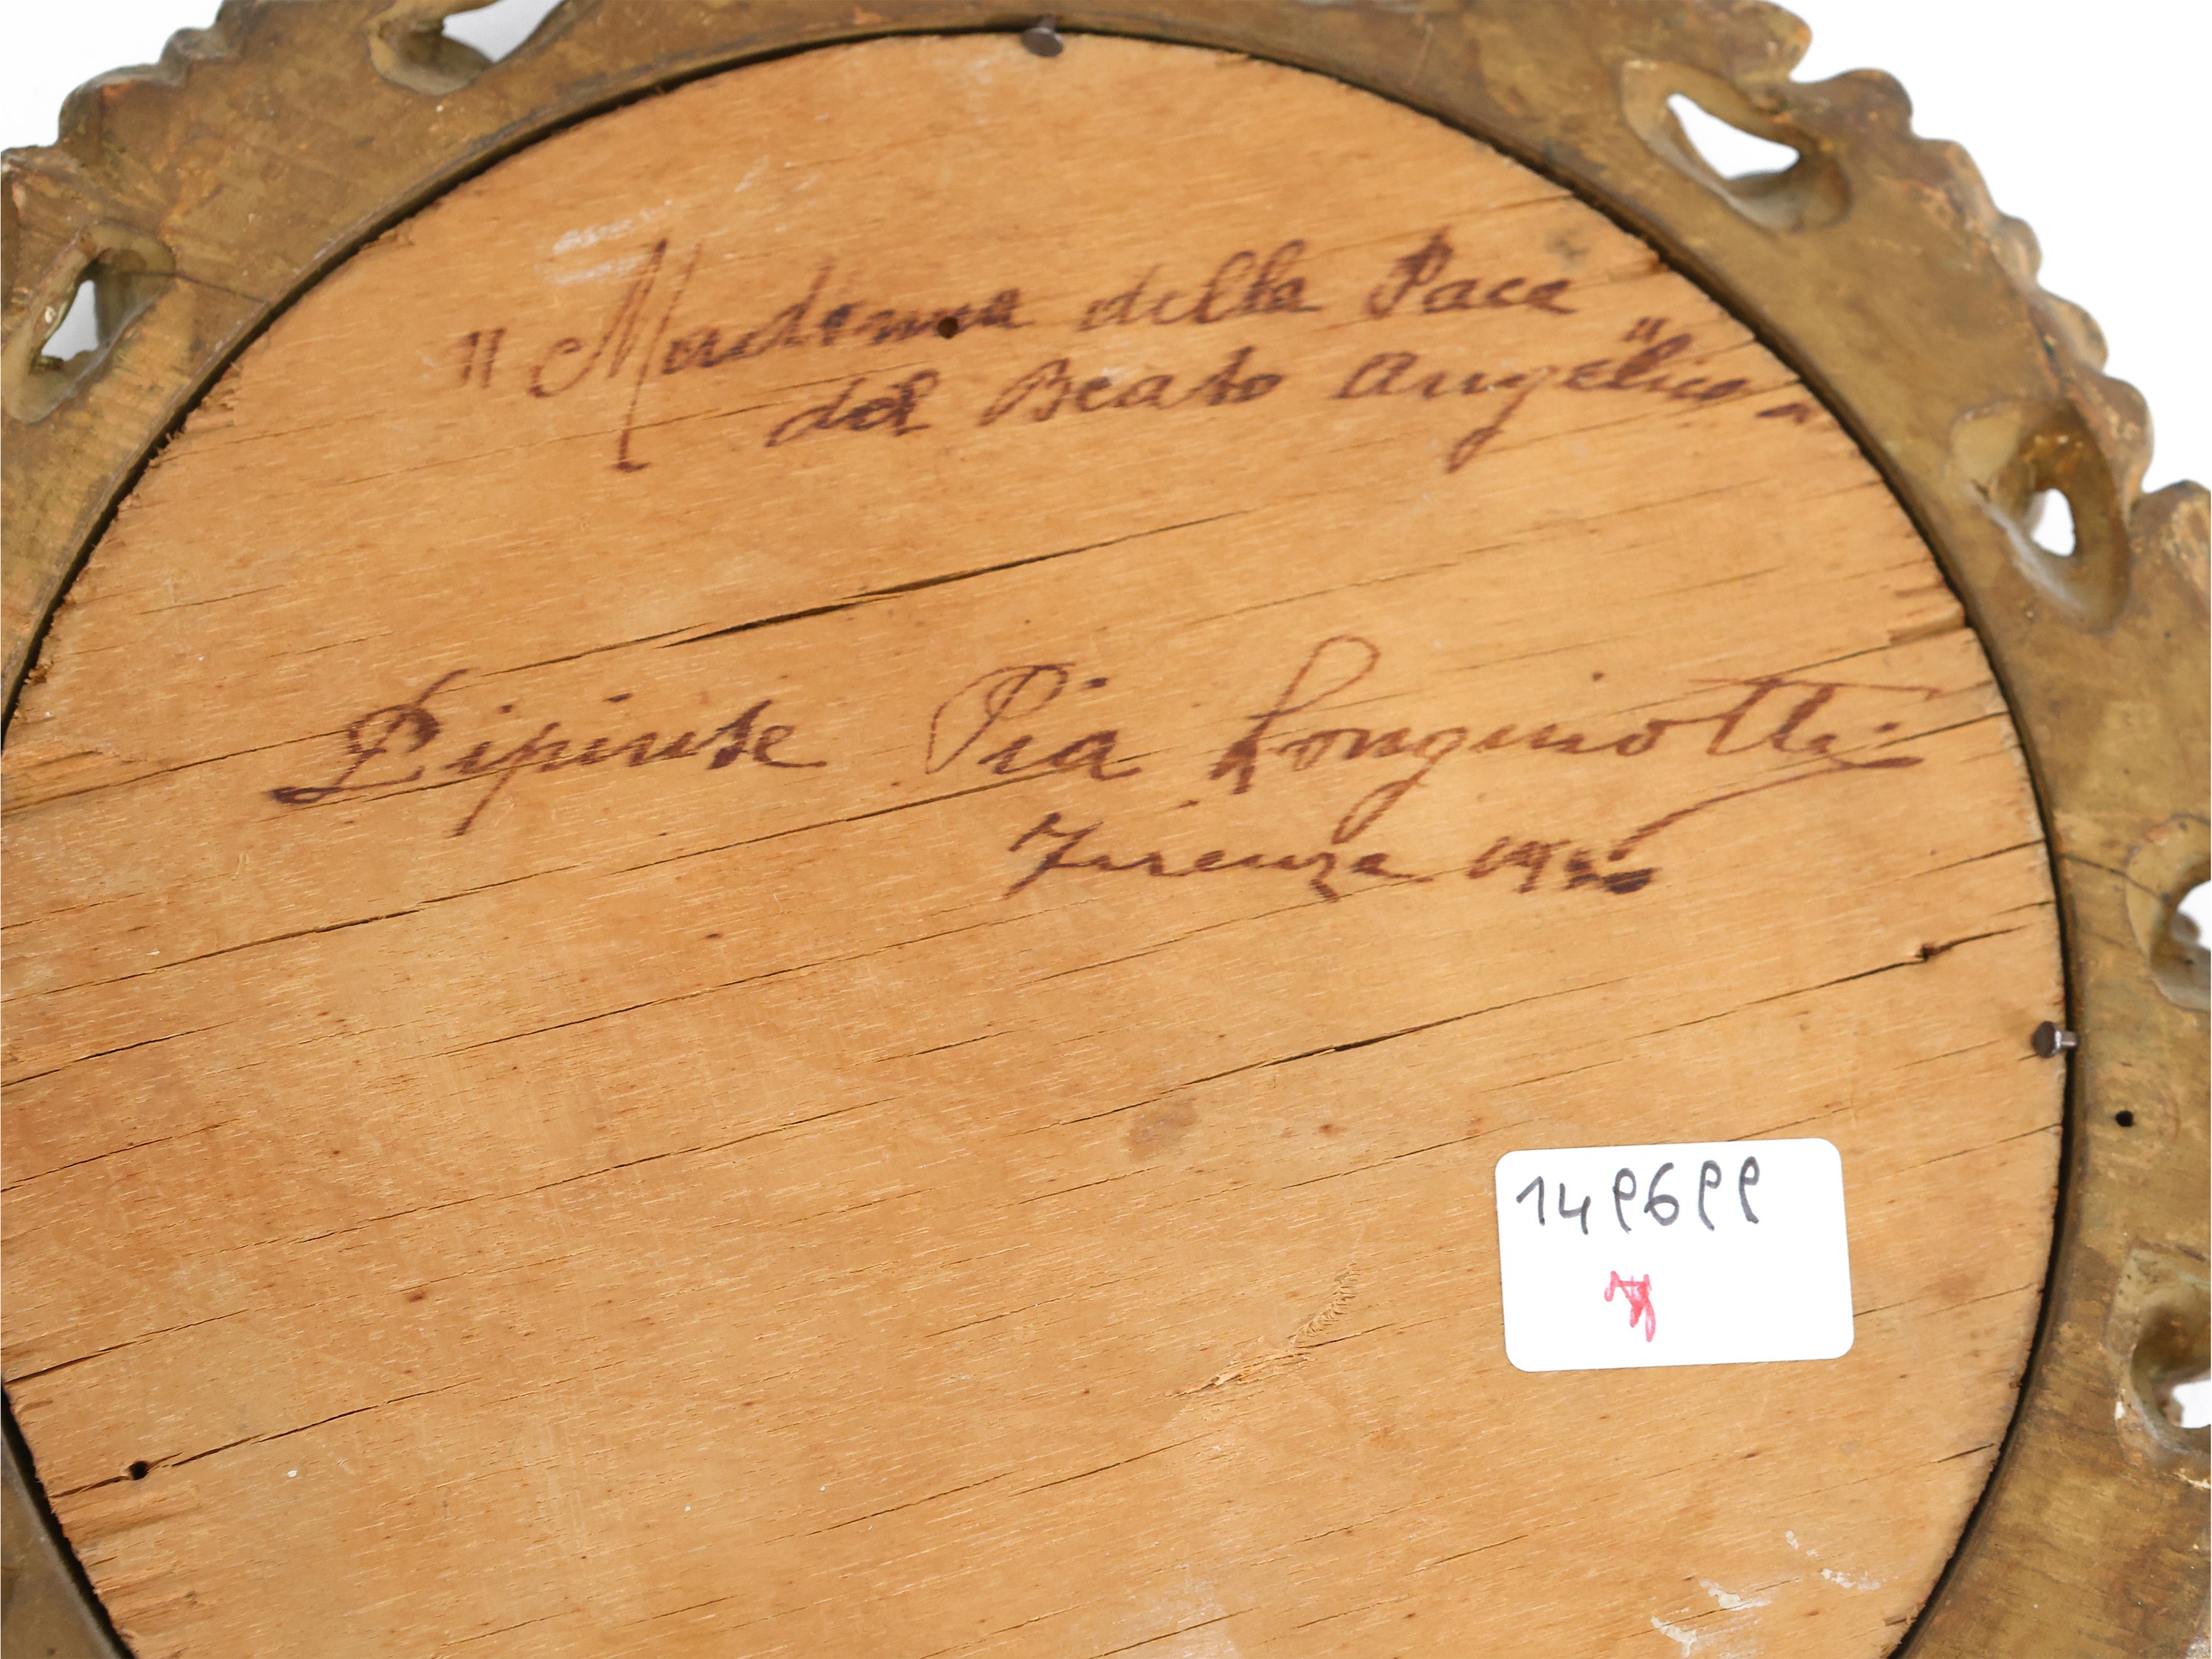 " Madonna della Pace "
del Beato Angelico
Dipinse Pia Longinotti
Firenze
149699